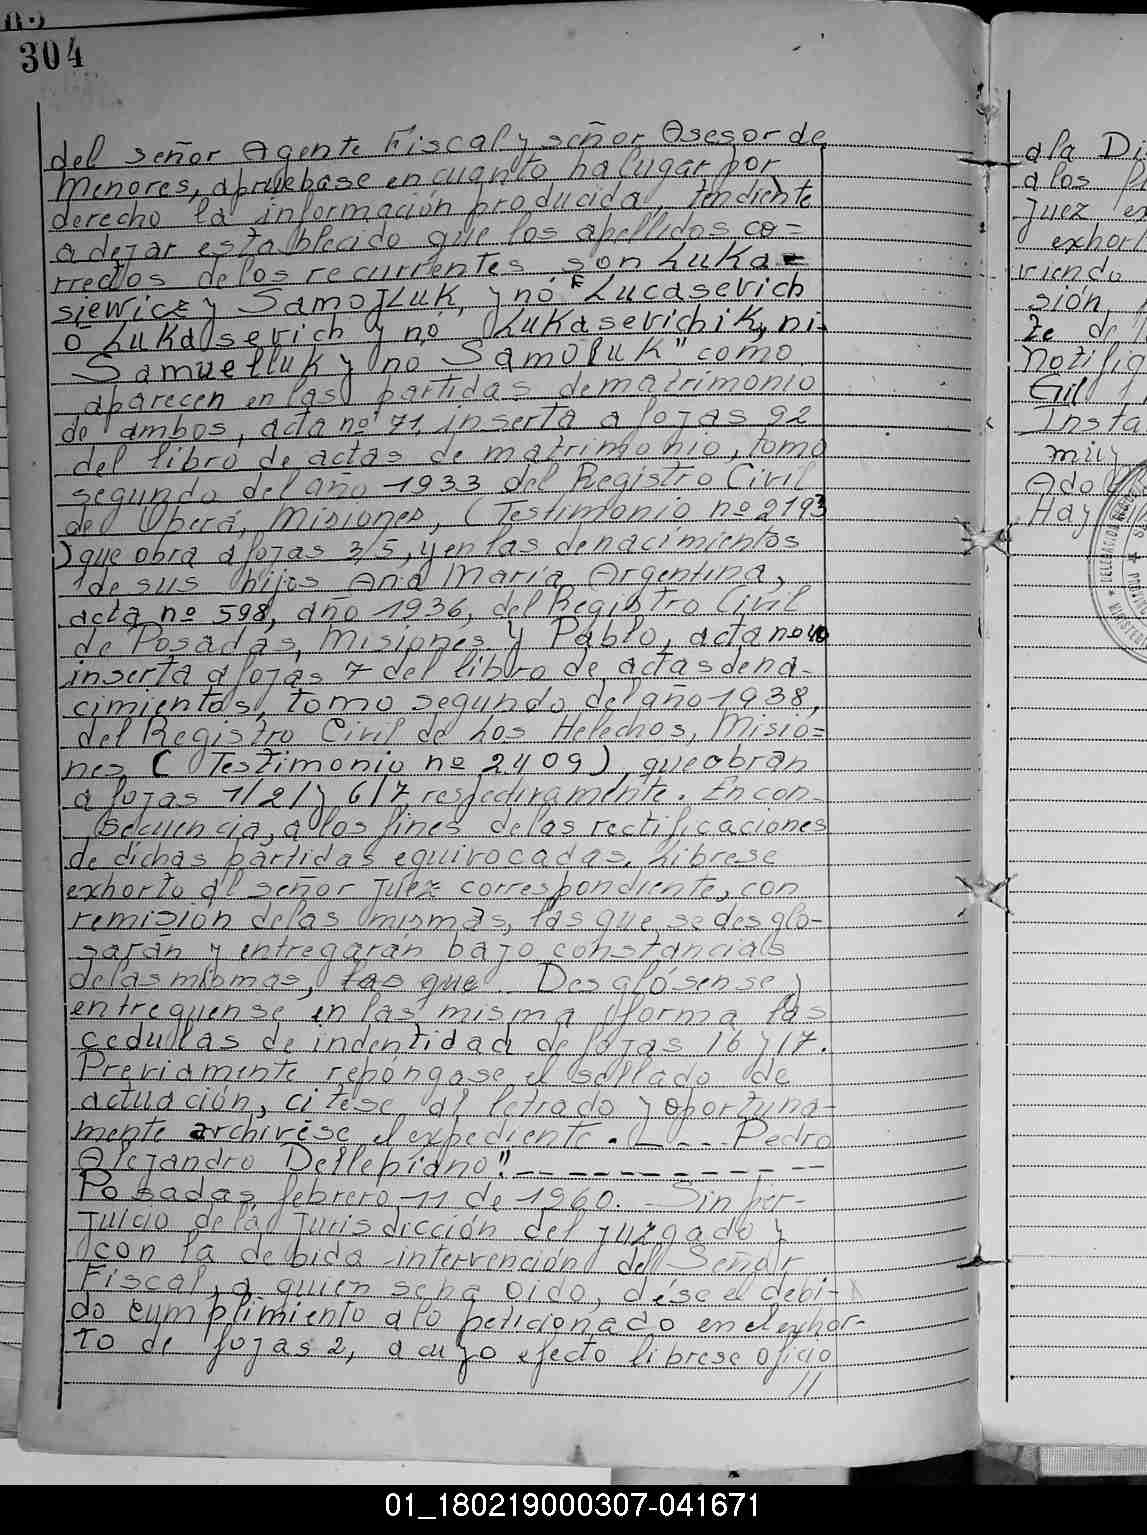 304
del señor Agente Fiscal y señor Asesor de
Menores, apruebase en cuanto ha lugar por
derecho la información producida, tendiente
a dejar establecido que los apellidos co=
rrectos de los recurrentes son Luka=
siewicz y Samojluk, y nó "Lucasevich
ó Lukasevich y nó Lukasevichik, ni
Samuelluk y no Samoluk" como
aparecen en las partidas de matrimonio
de ambos, acta nº 71, inserta a fojas 92
del libro de actas de matrimonio, tomo
segundo del año 1933 del Registro Civil
de Oberá, Misiones, (Testimonio nº 2193
) que obra a fojas 3/5, y en las de nacimientos
de sus hijos Ana María Argentina,
acta nº 598, año 1936, del Registro Civil
de Posadas, Misiones y Pablo, acta nº
inserta a fojas 7 del libro de actas de na-
cimientos, tomo segundo del año 1938,
del Registro Civil de Los Helechos, Misio=
nes ( Testimonio nº 2409), que obran
a fojas 1/2/ y 6/7 respectivamente. En con-
secuencia, a los fines de las rectificaciones
de dichas partidas equivocadas, librese
exhorto al señor Juez correspondiente, con
remisión de las mismas, las que se desglo-
sarán y entregaran bajo constancias
de las mismas, las que. Desglósense y
entreguense en las misma forma las
cedullas de indentidad de fojas 16 y 17.
Previamente repóngase el sellado de
actuación, citese al letrado y oportuna-
mente archivese el expediente. - - - - Pedro
Alejandro Dellepiano". - - - - - - - - - -
Posadas, febrero 11 de 1960. Sin per-
juicio de la jurisdicción del juzgado y
con la debida intervención del Señor
Fiscal, a quien se ha oido, dése el debi-
do cumplimiento a lo peticionado en el exhor-
to de fojas 2, a cuyo efecto librese oficio
//
a la Di
a los
Juez en
exhor
riendo
sión,
2e de
Notifiq
Gil
Insta
miy
Ado
Hay
01_180219000307-041671